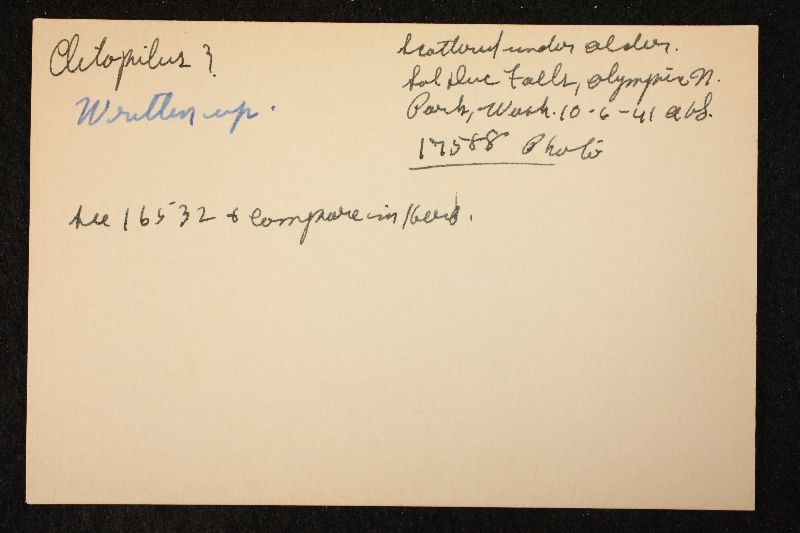 Clitopilus ?
Written up.
Scattered under alder.
Sol Duc Falls, Olympic N.
Park, Wash. 10-6-41 AHS.
17588 Photo
See 16532 & compare in herb.